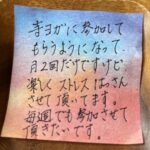 寺ヨガに参加して
もらうようになって
月2回だけですけど
楽しくストレスはっさん
させて頂いてます。
毎週でも参加させて
頂きたいです。